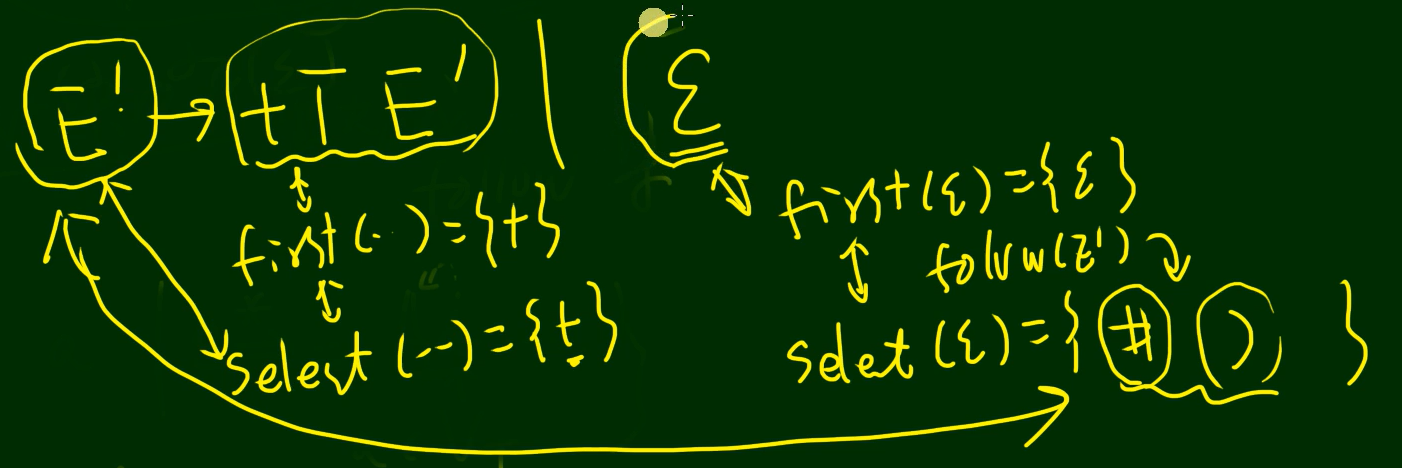 E' → +TE' | ε
first(··)={+}
select(--)={+}
first(ε)={ε}
follow(E')
select(ε)={# )}